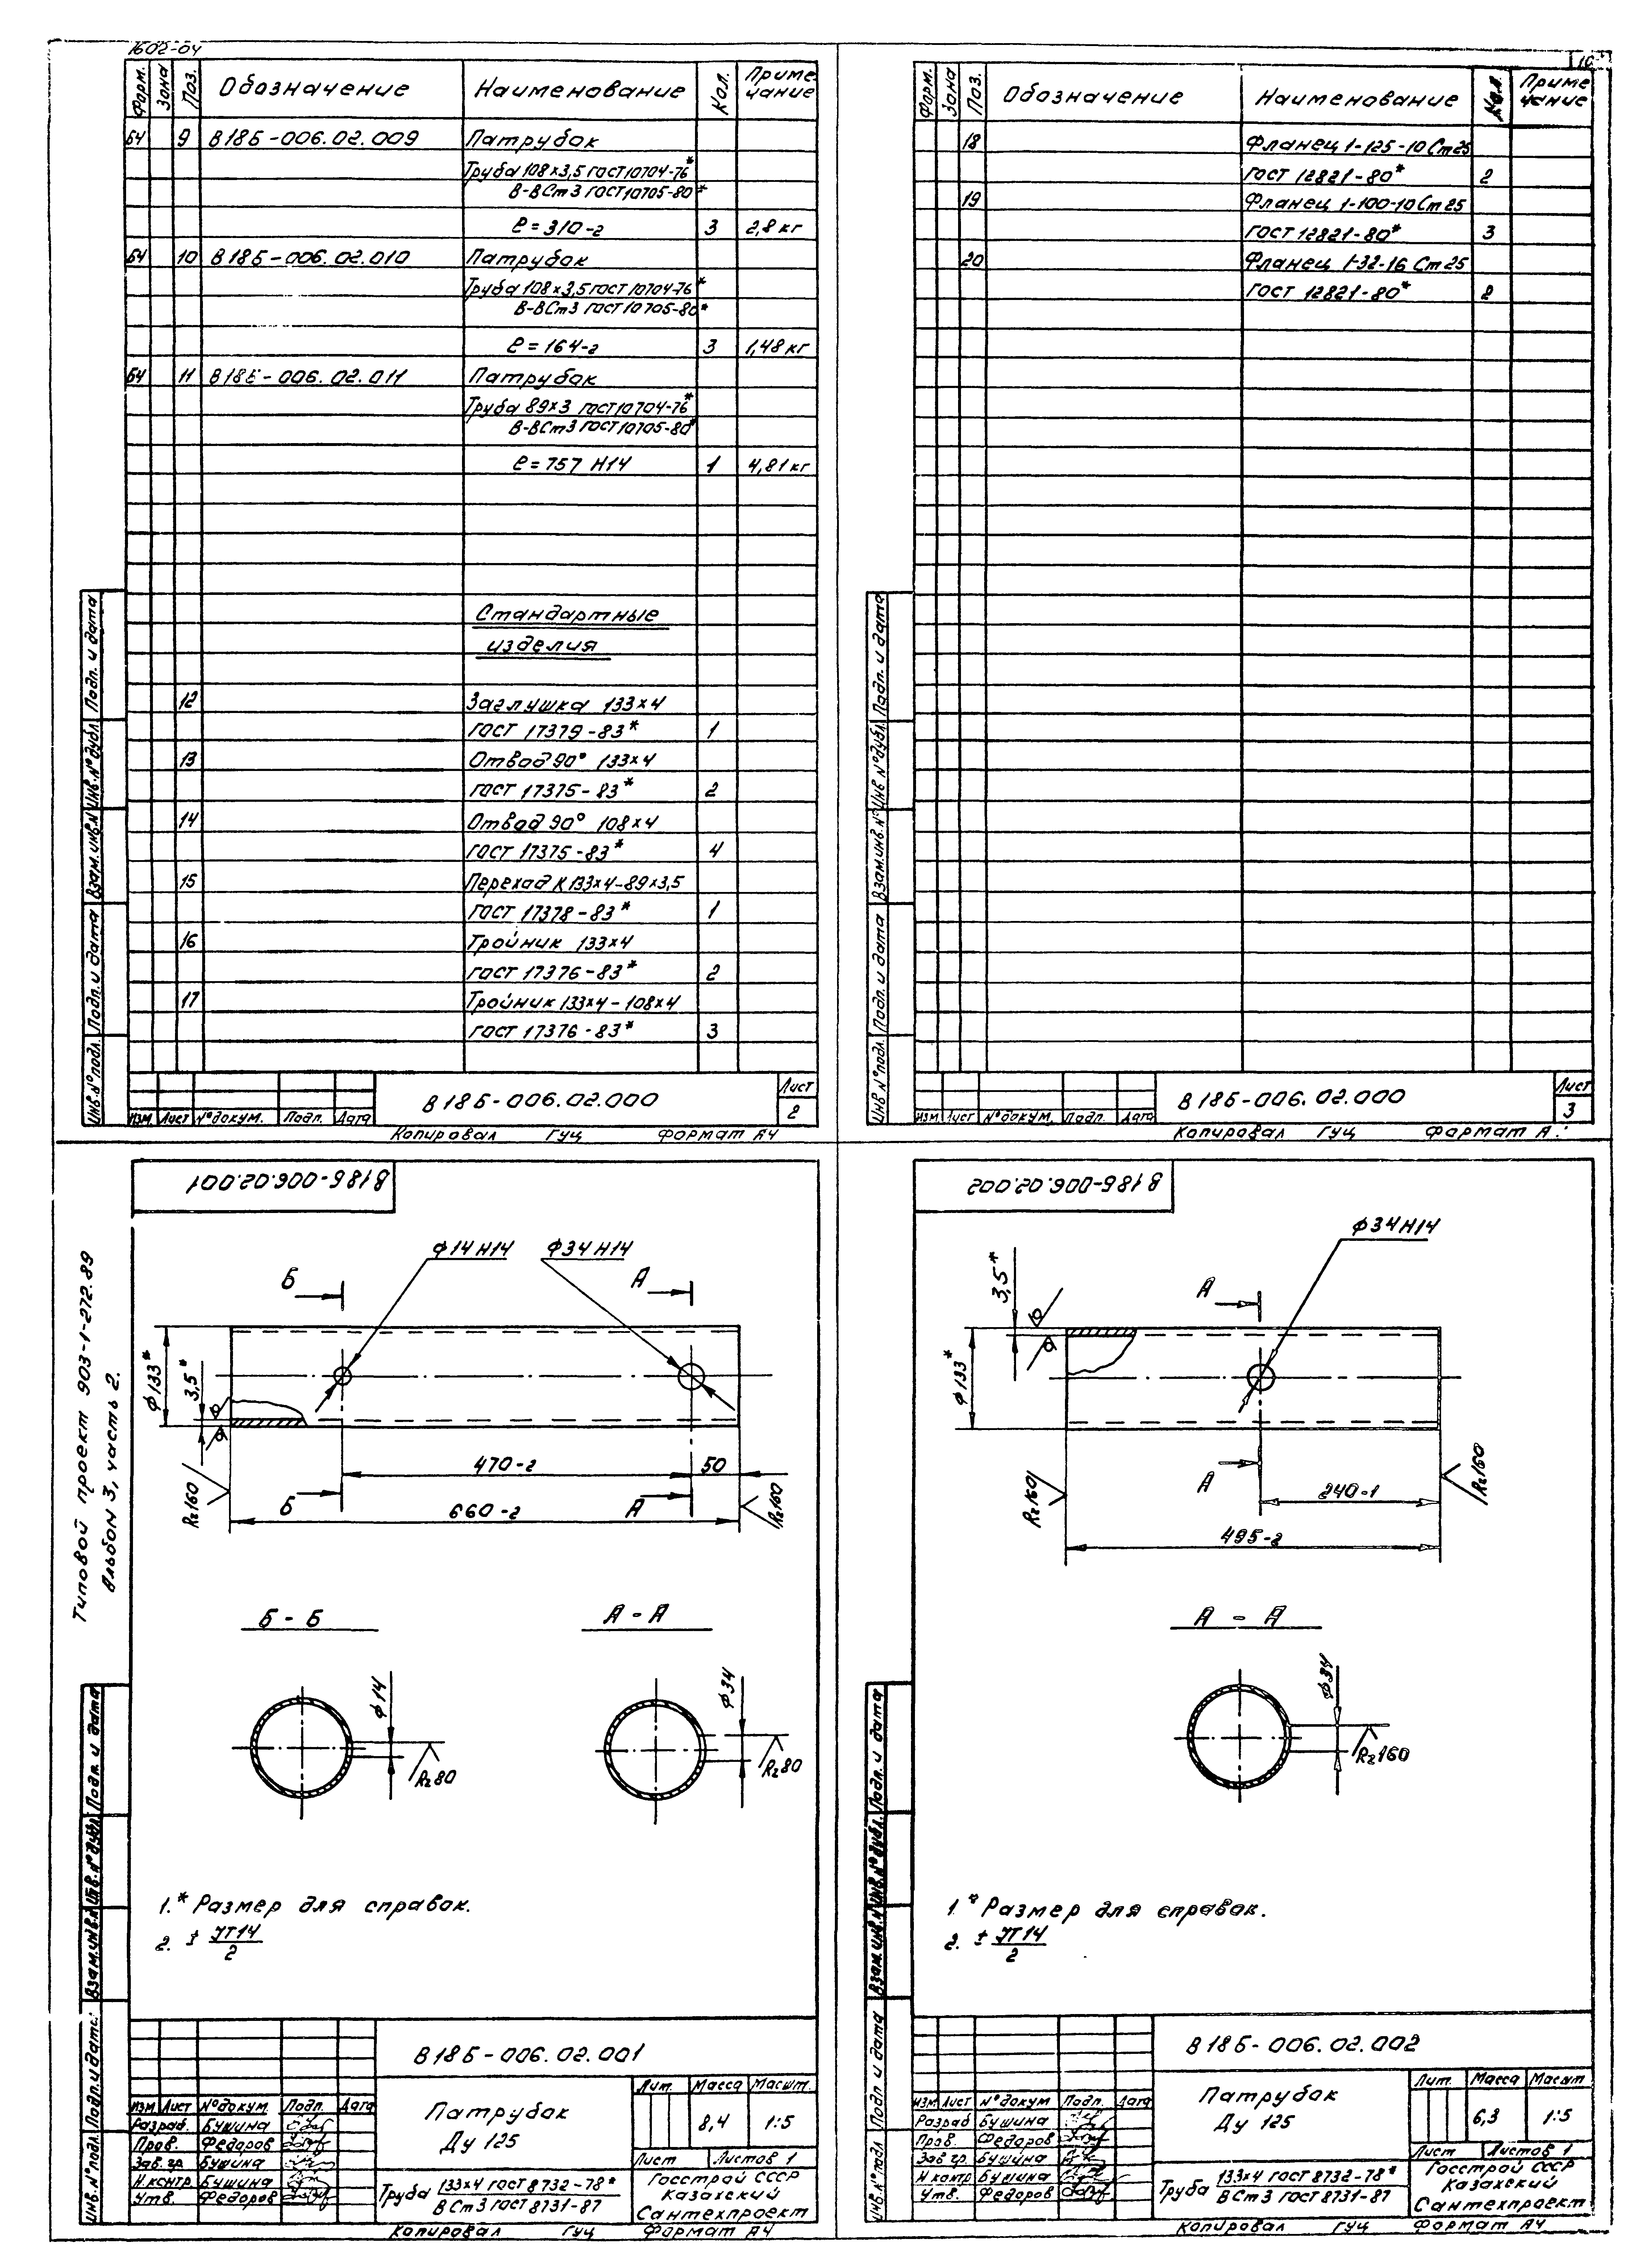 1602-04
Форм. Зона Поз. Обозначение Наименование Кол. Приме чание
БЧ 9 В18Б-006.02.009 Патрубок
Труба 108×3,5 ГОСТ 10704-76*
В-ВСт3 ГОСТ 10705-80*
ℓ=310-2 3 2,8кг
БЧ 10 В18Б-006.02.010 Патрубок
Труба 108×3,5 ГОСТ 10704-76*
В-ВСт3 ГОСТ 10705-80*
ℓ=164-2 3 1,48кг
БЧ 11 В18Б-006.02.011 Патрубок
Труба 89×3 ГОСТ 10704-76*
В-ВСт3 ГОСТ 10705-80*
ℓ=757 Н14 1 4,81кг
Стандартные
изделия
12 Заглушка 133×4
ГОСТ 17379-83* 1
13 Отвод 90° 133×4
ГОСТ 17375-83* 2
14 Отвод 90° 108×4
ГОСТ 17375-83* 4
15 Переход К133×4-89×3,5
ГОСТ 17378-83* 1
16 Тройник 133×4
ГОСТ 17376-83* 2
17 Тройник 133×4-108×4
ГОСТ 17376-83* 3
Инв.N°подл. Подп. и дата Взам.инв.N Инв.N°дубл. Подп. и дата
Изм Лист N°докум. Подп. Дата
В18Б-006.02.000
Лист
2
Копировал ГУЦ Формат А4
Форм. Зона Поз. Обозначение Наименование Кол. Приме чание
18 Фланец 1-125-10 Ст25
ГОСТ 12821-80* 2
19 Фланец 1-100-10 Ст25
ГОСТ 12821-80* 3
20 Фланец 1-32-16 Ст25
ГОСТ 12821-80* 2
Инв.N°подл. Подп. и дата Взам.инв.N° Инв.N°дубл. Подп. и дата
Изм Лист N°докум. Подп. Дата
В18Б-006.02.000
Лист
3
Копировал ГУЦ Формат А
Типовой проект 903-1-272.89
Альбом 3, часть 2.
В18Б-006.02.001
ф14Н14 ф34Н14
Б А
ф133*
3,5*
470-2 50
Б А
660-2
Rz160 Rz160
Б-Б А-А
ф14 ф34
Rz80 Rz80
1.* Размер для справок.
2. ± УТ14
2
Инв.N°подл. Подп. и дата Взам.инв.N Инв.N°дубл. Подп. и дата
В18Б-006.02.001
Изм Лист N°докум. Подп. Дата
Разраб. Бушина
Пров. Федоров
Зав.гр. Бушина
Н.контр. Бушина
Утв. Федоров
Патрубок
Ду 125
Лит. Масса Масшт.
8,4 1:5
Лист Листов 1
Труба 133×4 ГОСТ 8732-78*
ВСт3 ГОСТ 8731-87
Госстрой СССР
Казахский
Сантехпроект
Копировал ГУЦ Формат А4
В18Б-006.02.002
ф34Н14
3,5*
А
ф133*
А
240-1
495-2
Rz160 Rz160
А-А
ф34
Rz160
1.* Размер для справок.
2. ± УТ14
2
Инв.N°подл. Подп. и дата Взам.инв.N° Инв.N°дубл. Подп. и дата
В18Б-006.02.002
Изм Лист N°докум Подп. Дата
Разраб Бушина
Пров. Федоров
Зав.гр. Бушина
Н.контр Бушина
Утв. Федоров
Патрубок
Ду 125
Лит. Масса Масшт
6,3 1:5
Лист Листов 1
Труба 133×4 ГОСТ 8732-78*
ВСт3 ГОСТ 8731-87
Госстрой СССР
Казахский
Сантехпроект
Копировал ГУЦ Формат А4